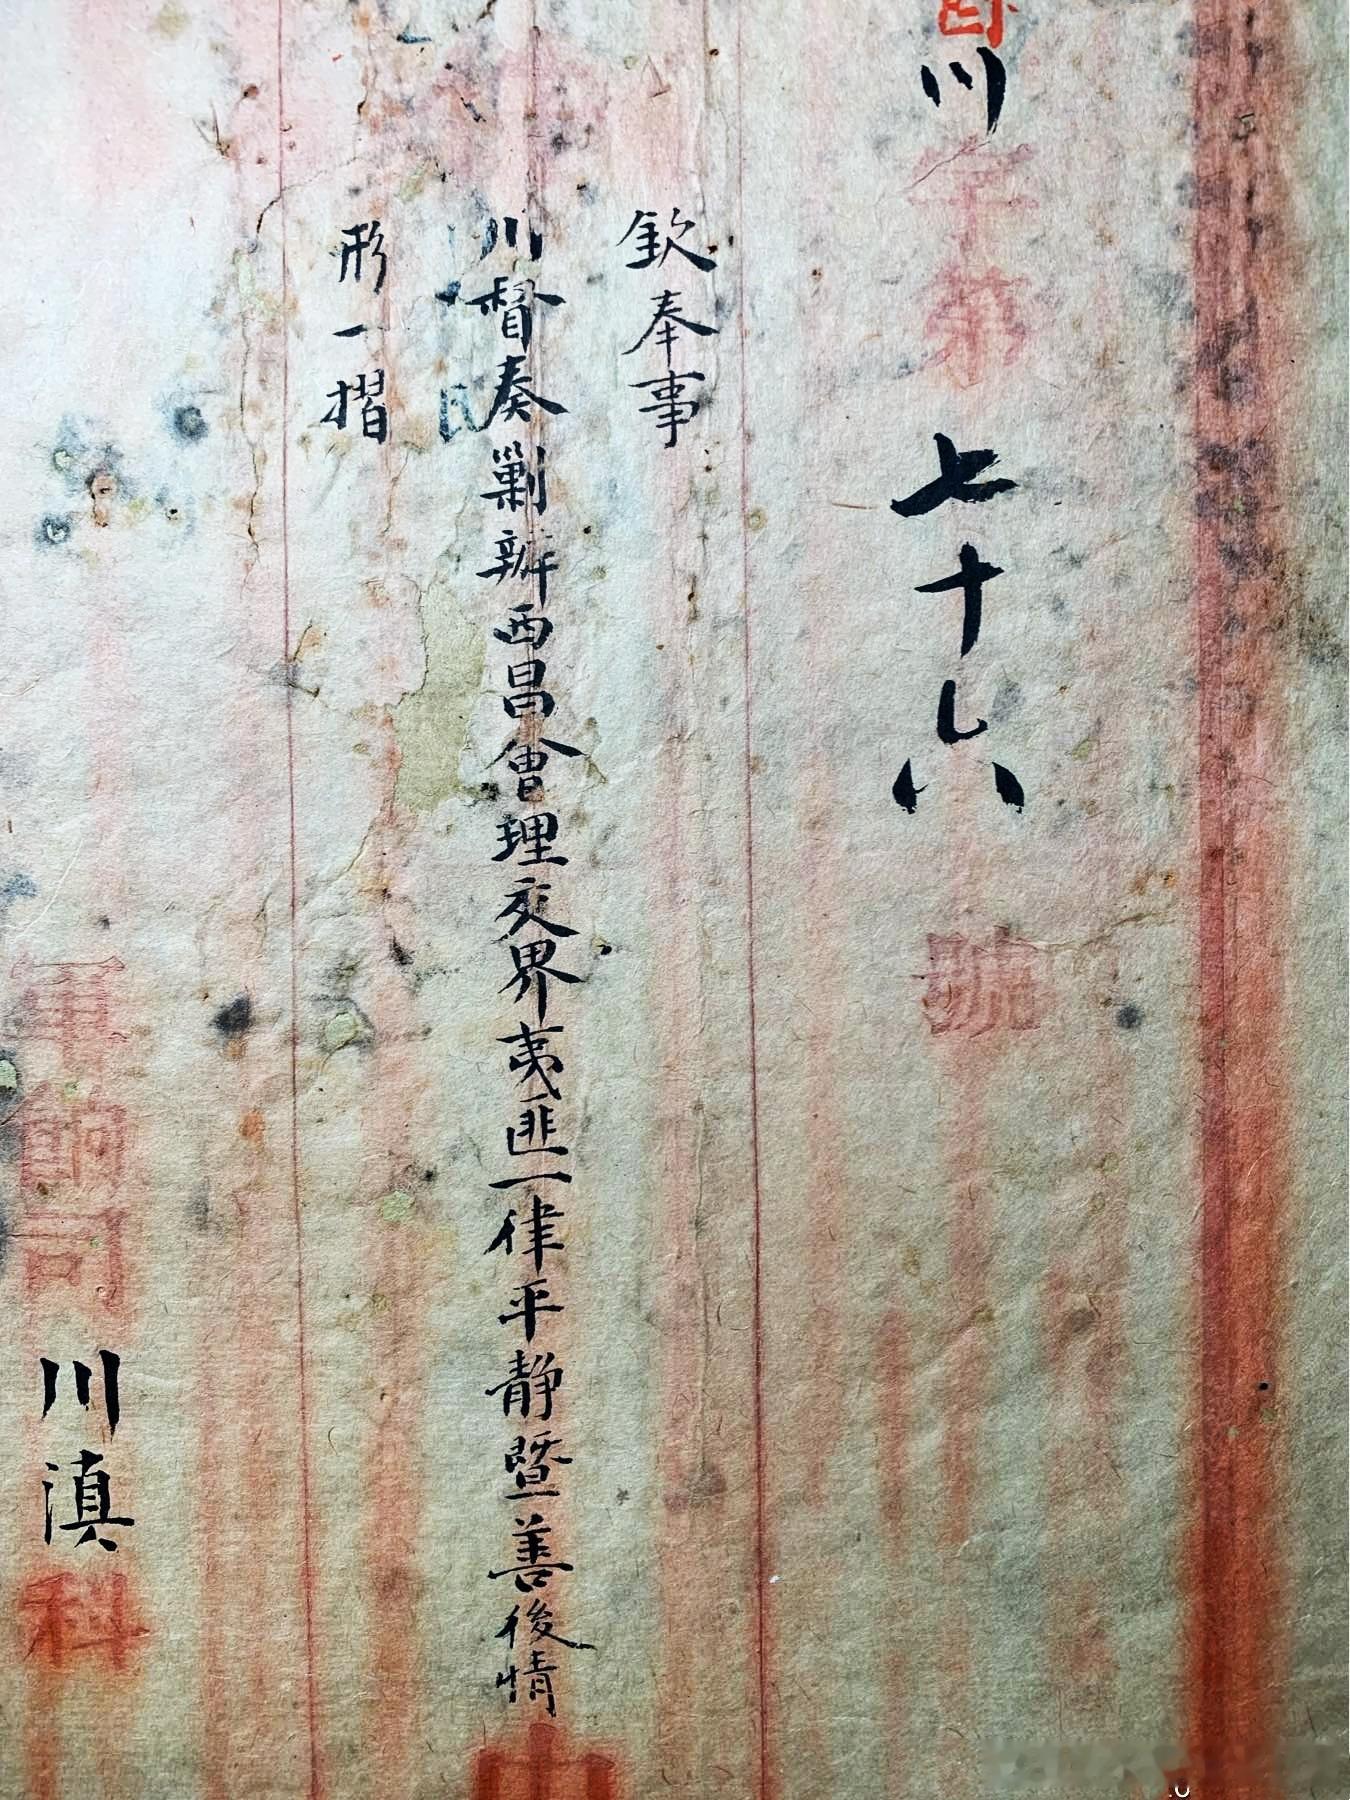 川字第七十六號
欽奉事
川督奏剿辦西昌會理交界夷匪一律平靜暨善後情
形一摺
軍餉司川滇科